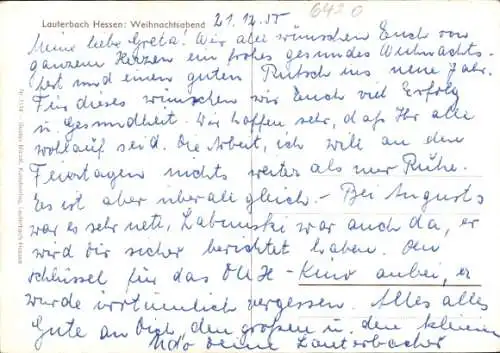 Lauterbach Hessen: Weihnachtsabend 21.12.55
6420
Meine liebe Greta! Wir alle wünschen Euch von
ganzem Herzen ein frohes gesundes Weihnachts-
fest und einen guten Rutsch ins neue Jahr.
Für dieses wünschen wir Euch viel Erfolg
u. Gesundheit. Wir hoffen sehr, daß Ihr alle
wohlauf seid. Die Arbeit, ich will an den
Feiertagen nichts weiter als nur Ruhe.
Es ist aber überall gleich. - Bei Augusts
war es sehr nett, Labunski war auch da, er
wird Dir sicher berichtet haben. Den
Schlüssel für das - Kino anbei, er
wurde irrtümlich vergessen. Alles alles
Gute an Dich, den großen u. den kleinen
Udo Deine Lauterbacher
Gustav Mandt, Kunstverlag, Lauterbach Hessen